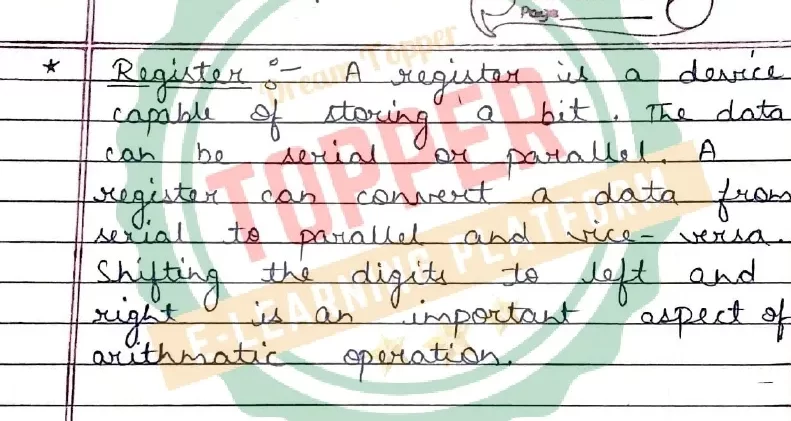 Page
* Register :- A register is a device
capable of storing a bit. The data
can be serial or parallel. A
register can convert a data from
serial to parallel and vice-versa.
Shifting the digits to left and
right is an important aspect of
arithmatic operation.
Dream Topper
TOPPER
E-LEARNING PLATFORM